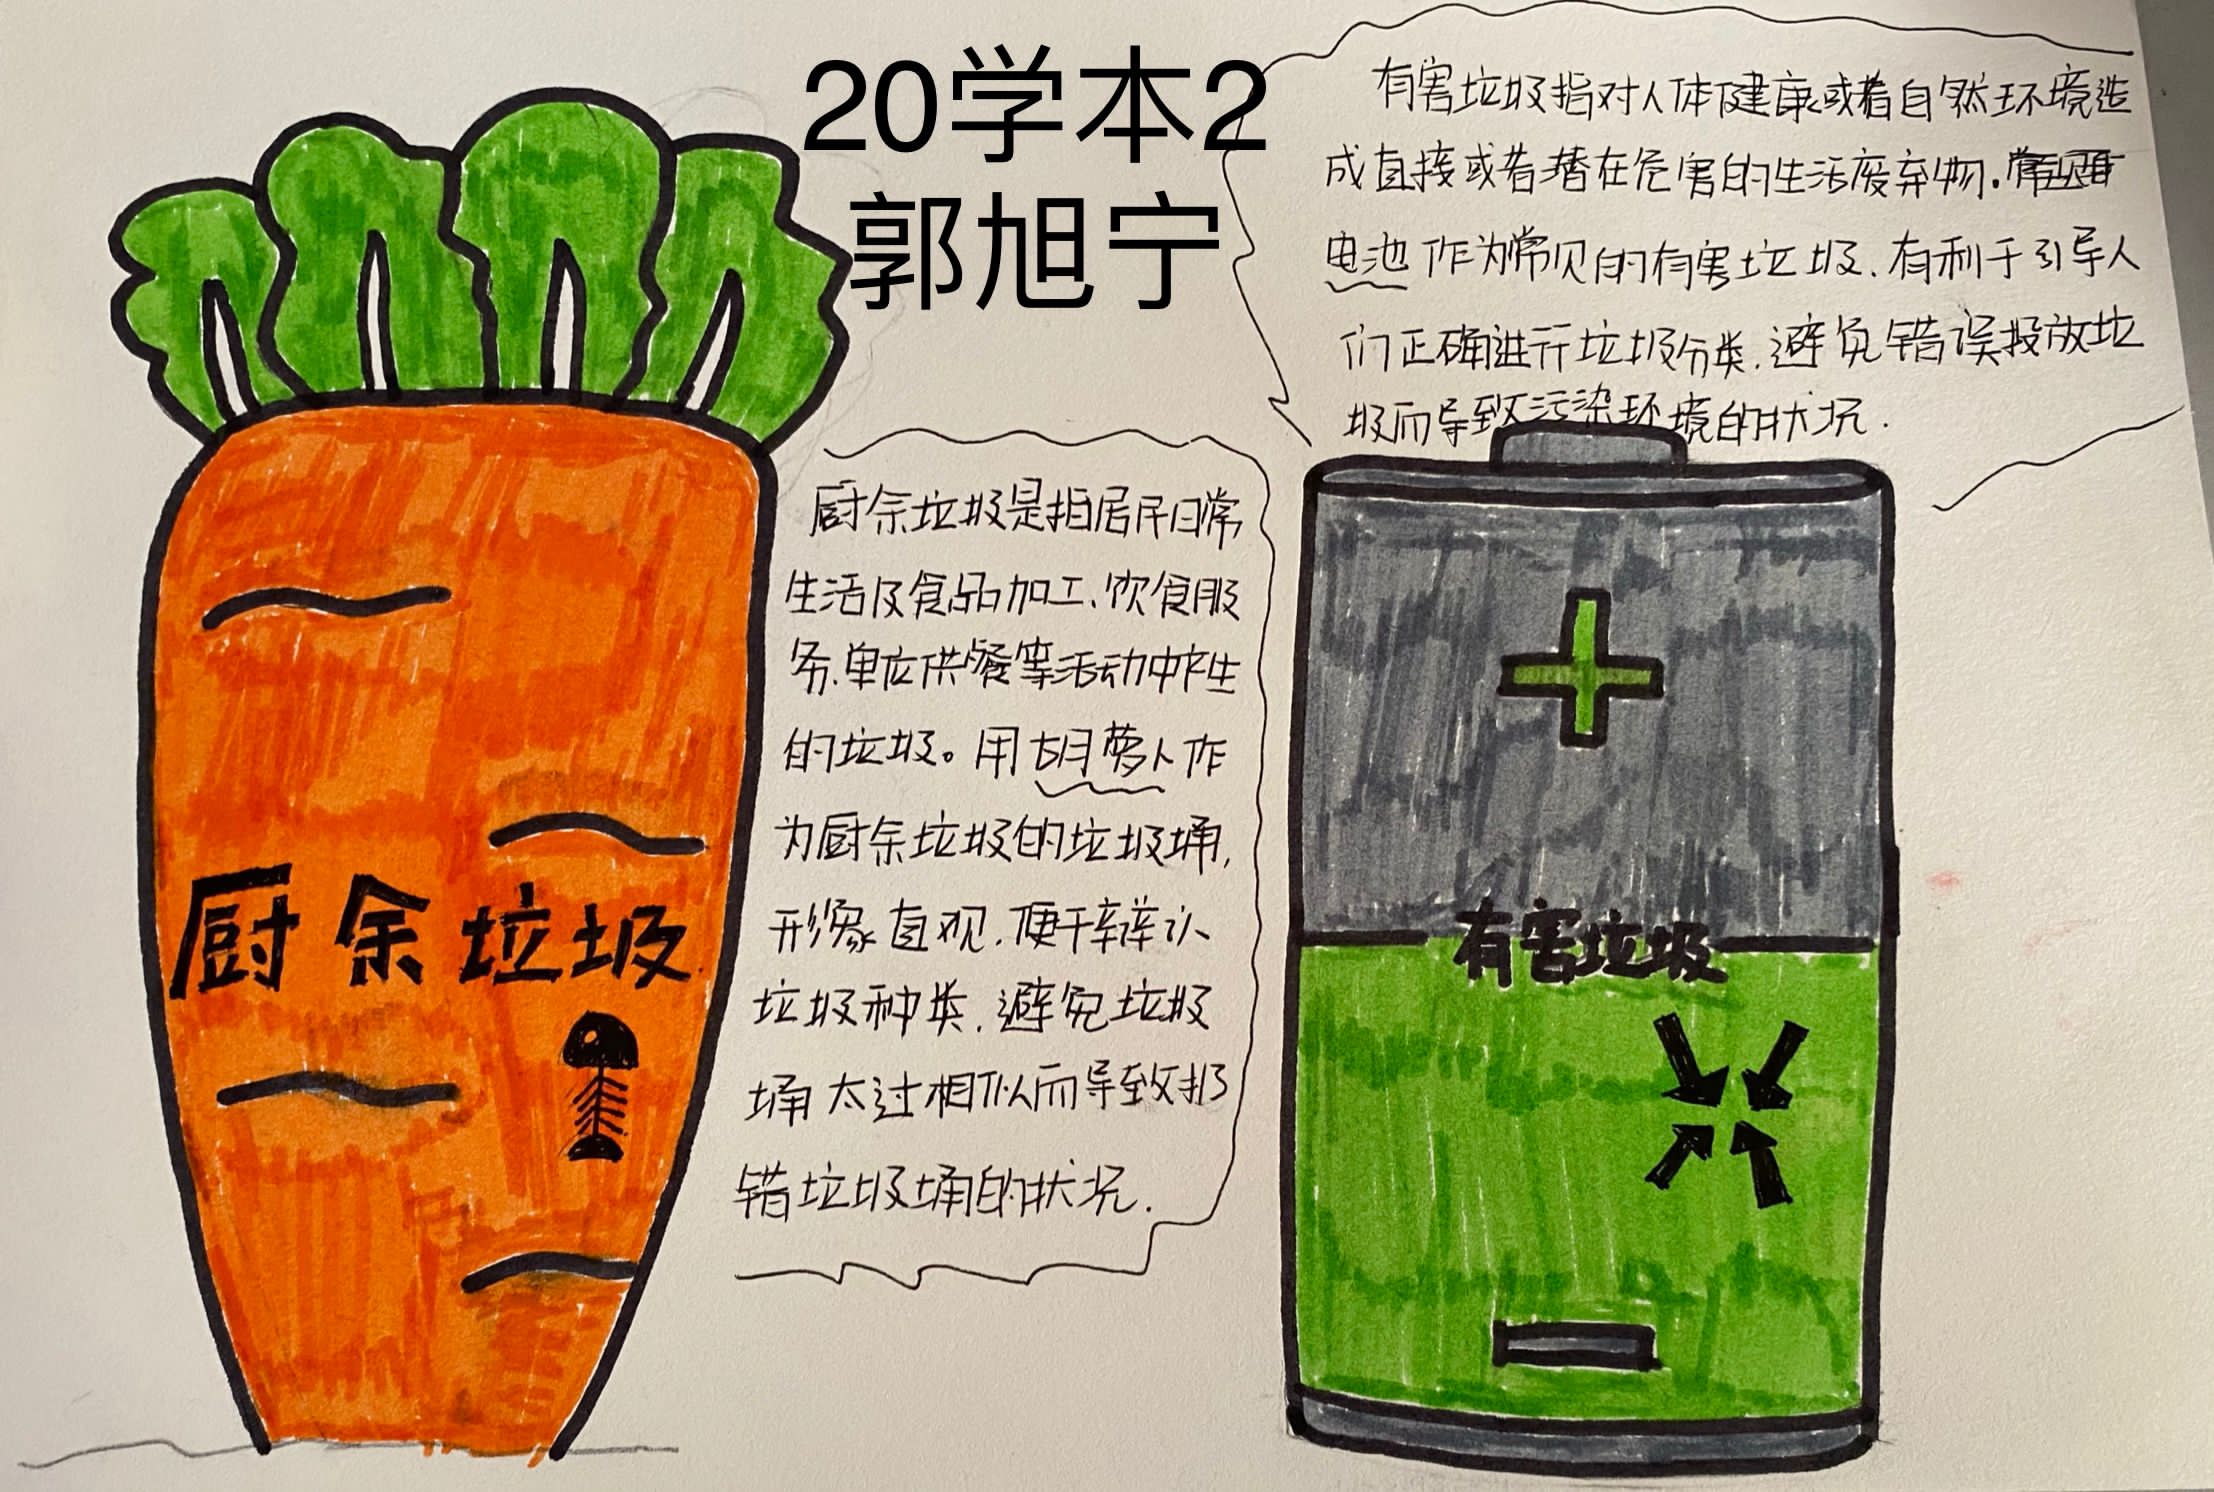 20学本2
郭旭宁
有害垃圾指对人体健康或者自然环境造
成直接或者潜在危害的生活废弃物.
电池作为常见的有害垃圾.有利于引导人
们正确进行垃圾分类.避免错误投放垃
圾而导致污染环境的状况.
厨余垃圾是指居民日常
生活及食品加工、饮食服
务、单位供餐等活动中产生
的垃圾。用胡萝卜作
为厨余垃圾的垃圾桶,
形象直观.便于辨认
垃圾种类.避免垃圾
桶太过相似而导致扔
错垃圾桶的状况.
厨余垃圾
有害垃圾